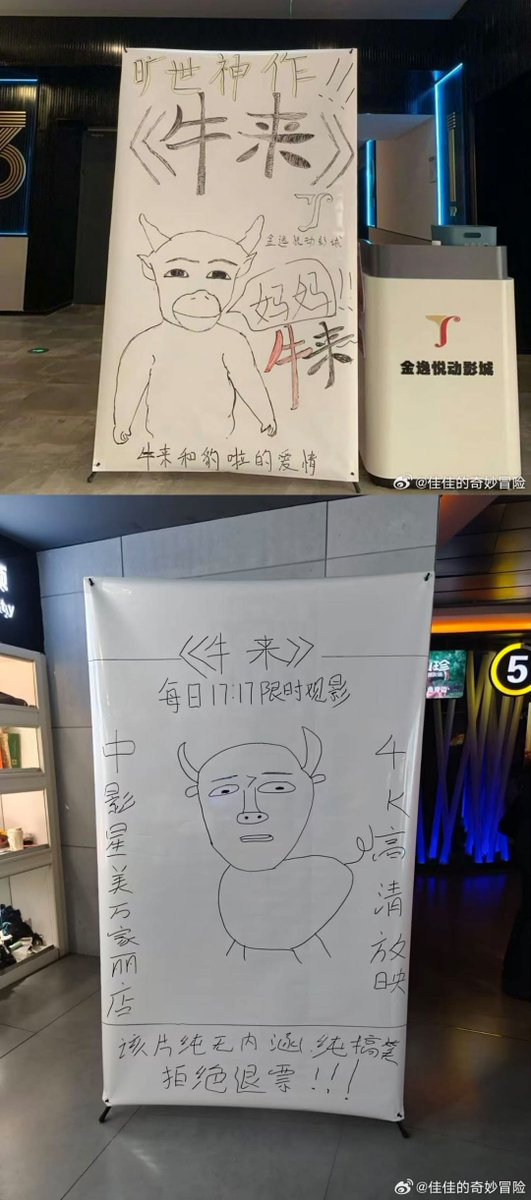 旷世神作!!!
《牛来》
金逸悦动影城
妈妈!!
牛来~
牛来和豹啦的爱情
金逸悦动影城
@佳佳的奇妙冒险
《牛来》
每日17:17限时观影
中影星美万家丽店
4K高清放映
该片纯无内涵.纯搞笑
拒绝退票!!!
5
@佳佳的奇妙冒险